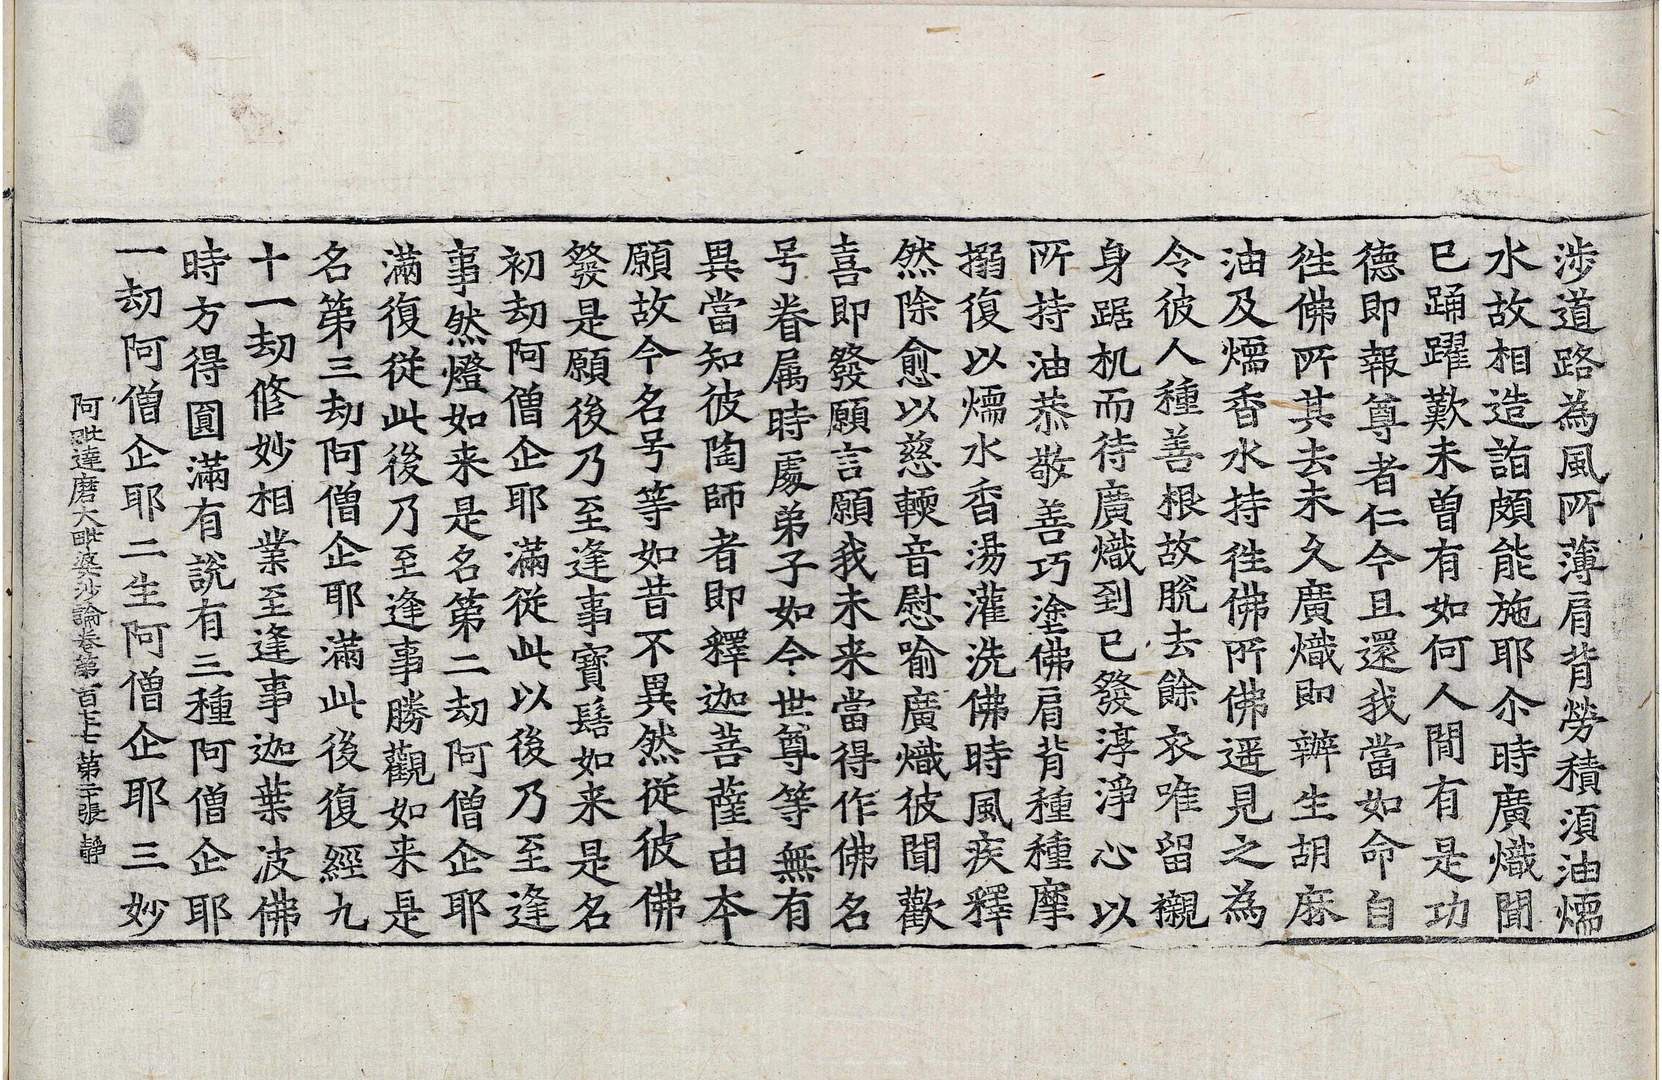 涉道路為風所薄肩背勞積湏油煗
水故相造詣頗能施耶尒時廣熾聞
已踊躍歎未曽有如何人閒有是功
德即報尊者仁今且還我當如命自
徃佛所其去未久廣熾即辦生胡麻
油及煗香水持徃佛所佛遥見之為
令彼人種善根故脫去餘衣唯留襯
身踞机而待廣熾到已發淳淨心以
所持油恭敬善巧塗佛肩背種種摩
搦復以煗水香湯灌洗佛時風疾釋
然除愈以慈輭音慰喻廣熾彼聞歡
喜即發願言願我未来當得作佛名
号眷属時處弟子如今世尊等無有
異當知彼陶師者即釋迦菩薩由本
願故今名号等如昔不異然從彼佛
發是願後乃至逢事寶髻如来是名
初劫阿僧企耶滿從此以後乃至逢
事然燈如来是名第二劫阿僧企耶
滿復從此後乃至逢事勝觀如来是
名第三劫阿僧企耶滿此後復經九
十一劫修妙相業至逢事迦葉波佛
時方得圓滿有說有三種阿僧企耶
一劫阿僧企耶二生阿僧企耶三妙
阿毗達磨大毗婆沙論卷第一百七十七 第二十張 靜